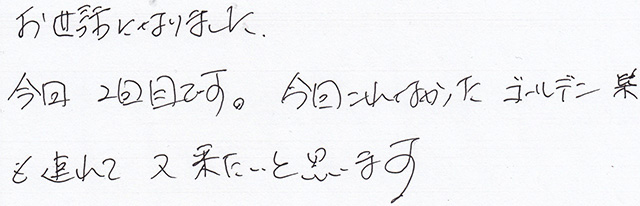 お世話になりました.
今回 2回目です。 今回これなかった ゴールデン
も連れて 又来たいと思います